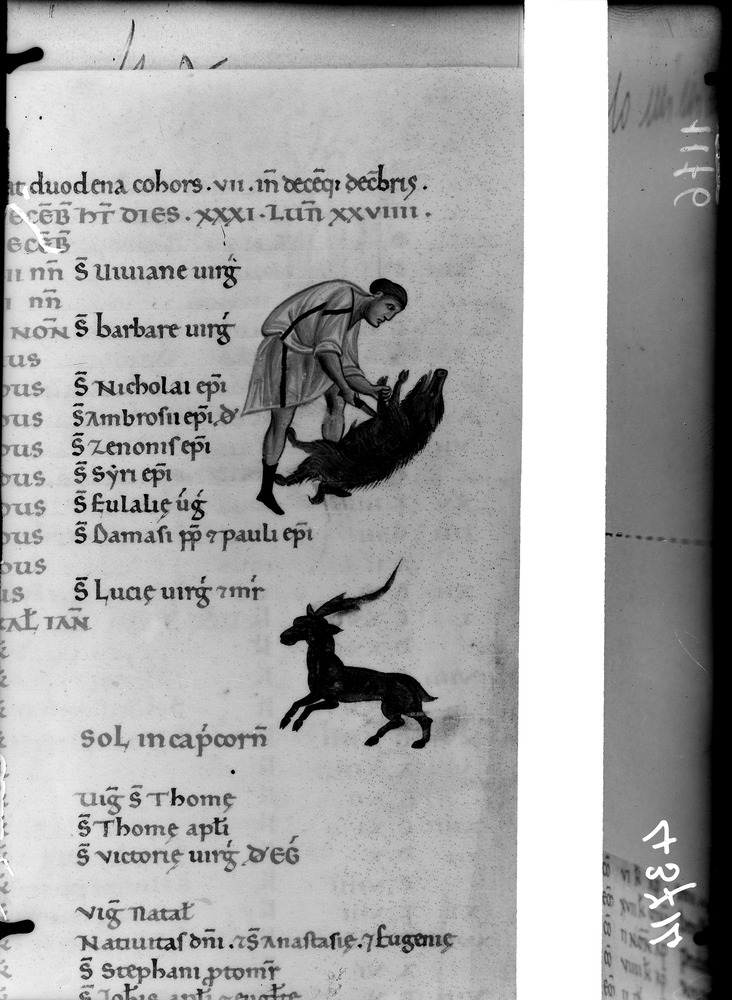 at duodena cohors . vii . in̄ decēq; dec̄bris .
ECEB̄ HT̄ DIES . XXXI . LUN̄ XXVIIII .
ECEB̄
II nn̄ S̄ Uiuiane uirḡ
I nn̄
NON̄ S̄ barbare uirḡ
us
DUS S̄ Nicholai ep̄i
DUS S̄ Ambrosii ep̄i . ð
DUS S̄ Zenonis ep̄i
DUS S̄ Syri ep̄i
DUS S̄ Eulalię úḡ
DUS S̄ Damasi pp̄ ⁊ pauli ep̄i
DUS
IS S̄ Lucię uirḡ ⁊ mr̄
KAL̄ IAN̄
SoL in cap̄corn̄
Uiḡ S̄ Thomę
S̄ Thomę aptɫi
S̄ Victorię uirḡ . D'EḠ
Viḡ Natal̄
Natiuitas dn̄i . ⁊ S̄ Anastasię . ⁊ Eugenię
S̄ Stephani ptom̄r
1146
43714